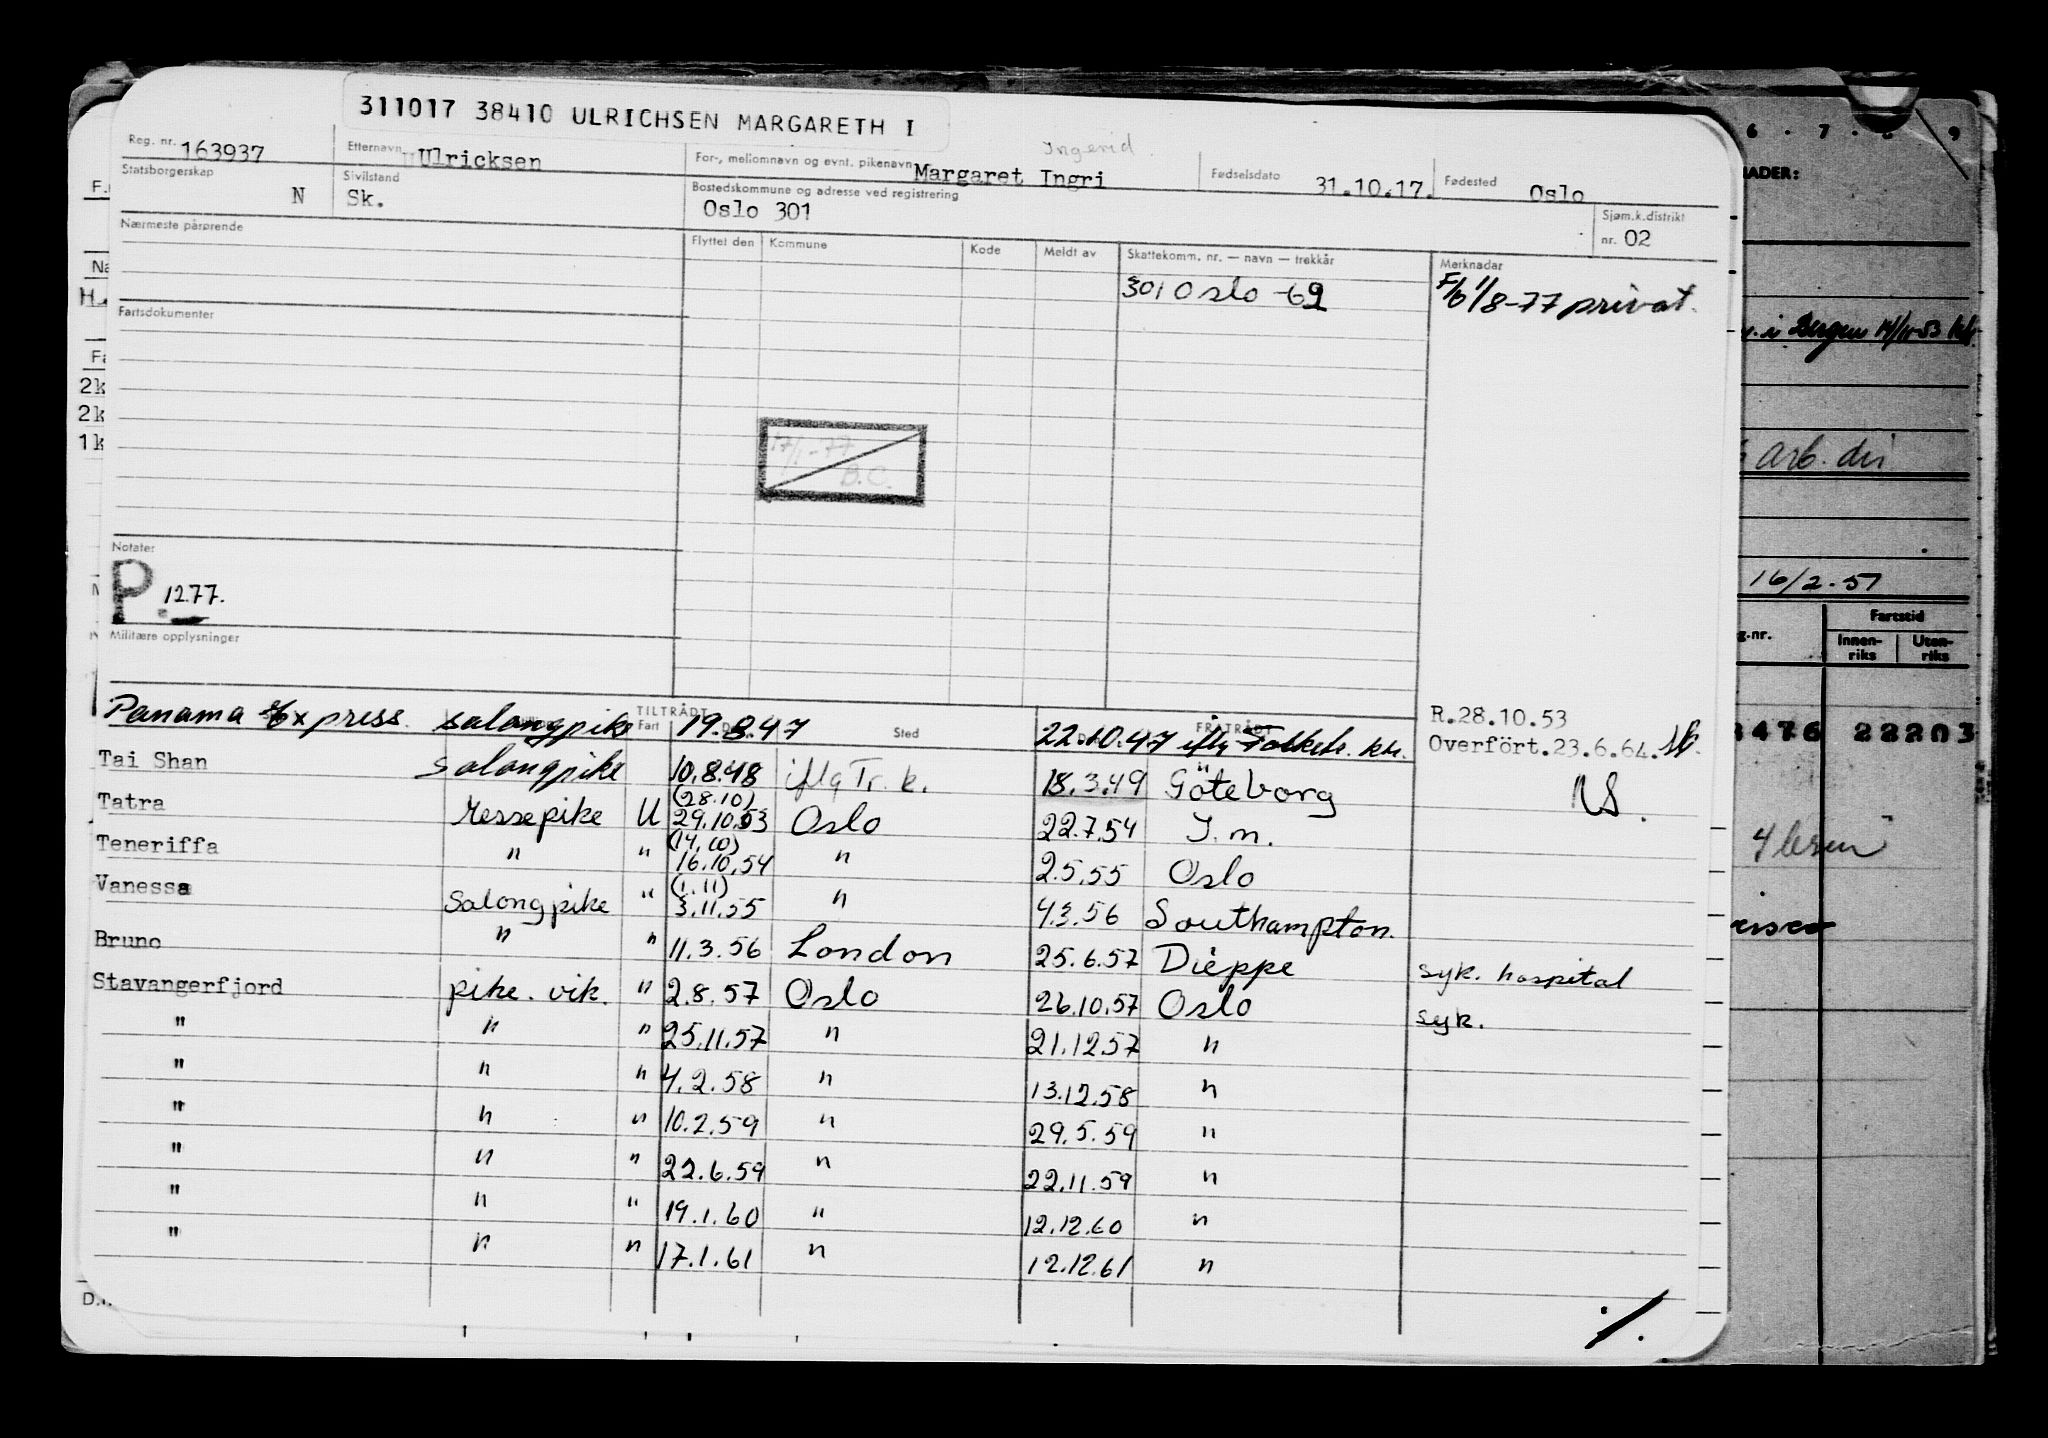 311017 38410 ULRICHSEN MARGARETH I
Reg. nr. 163937 Etternavn Ulricksen For-, mellomnavn og evnt. pikenavn Margaret Ingri Ingerid Fødselsdato 31.10.17. Fødested Oslo
Statsborgerskap N Sivilstand Sk. Bostedskommune og adresse ved registrering Oslo 301 Sjøm.k.distrikt nr. 02
Nærmeste pårørende Flyttet den Kommune Kode Meldt av Skattekomm. nr. — navn — trekkår Merknader
301 Oslo -69 F/b 1/8-77 privat.
Fartsdokumenter
17/1-77
B.C.
Notater
P. 12.77.
Militære opplysninger
TILTRÅDT FRATRÅDT R.28.10.53
Fart Sted Overfört.23.6.64.
Panama Express. salongpike 19.8.47 22.10.47 iflg Folketr. ktr.
Tai Shan Salongpike 10.8.48 iflg Tr. k. 18.3.49 Göteborg
(28.10)
Tatra Messepike U 29.10.53 Oslo 22.7.54 I. m.
(14.10)
Teneriffa " " 16.10.54 " 2.5.55 Oslo
(1.11)
Vanessa Salongpike " 3.11.55 " 4.3.56 Southampton.
Bruno " " 11.3.56 London 25.6.57 Dieppe syk. hospital
Stavangerfjord pike. vik. " 2.8.57 Oslo 26.10.57 Oslo syk.
" " " 25.11.57 " 21.12.57 "
" " " 4.2.58 " 13.12.58 "
" " " 10.2.59 " 29.5.59 "
" " " 22.6.59 " 22.11.59 "
" " " 19.1.60 " 12.12.60 "
" " " 17.1.61 " 12.12.61 "
6 . 7 . 8 . 9
arb. dir
16/2-57
Fartstid
Innen-riks Uten-riks
22203
2k
2k
1k